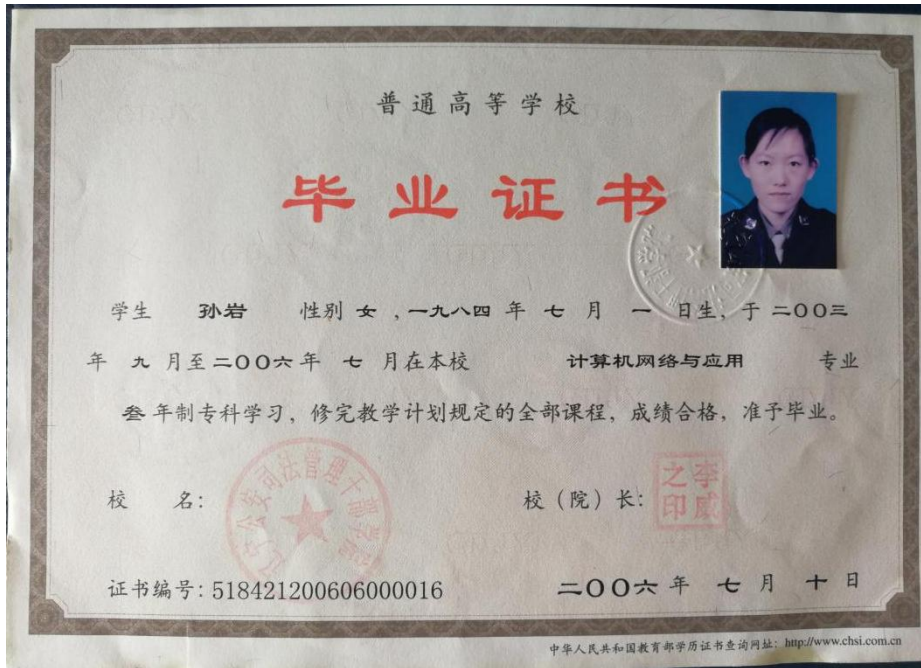 普通高等学校
毕业证书
学生 孙岩 性别 女 ,一九八四 年 七 月 一 日生, 于 二〇〇三
年 九 月至 二〇〇六 年 七 月在本校 计算机网络与应用 专业
叁 年制专科学习, 修完教学计划规定的全部课程, 成绩合格, 准予毕业。
辽宁公安司法管理干部学院
校 名:
校 (院) 长:
李威之印
证书编号: 518421200606000016
二〇〇六 年 七 月 十 日
中华人民共和国教育部学历证书查询网址: http://www.chsi.com.cn